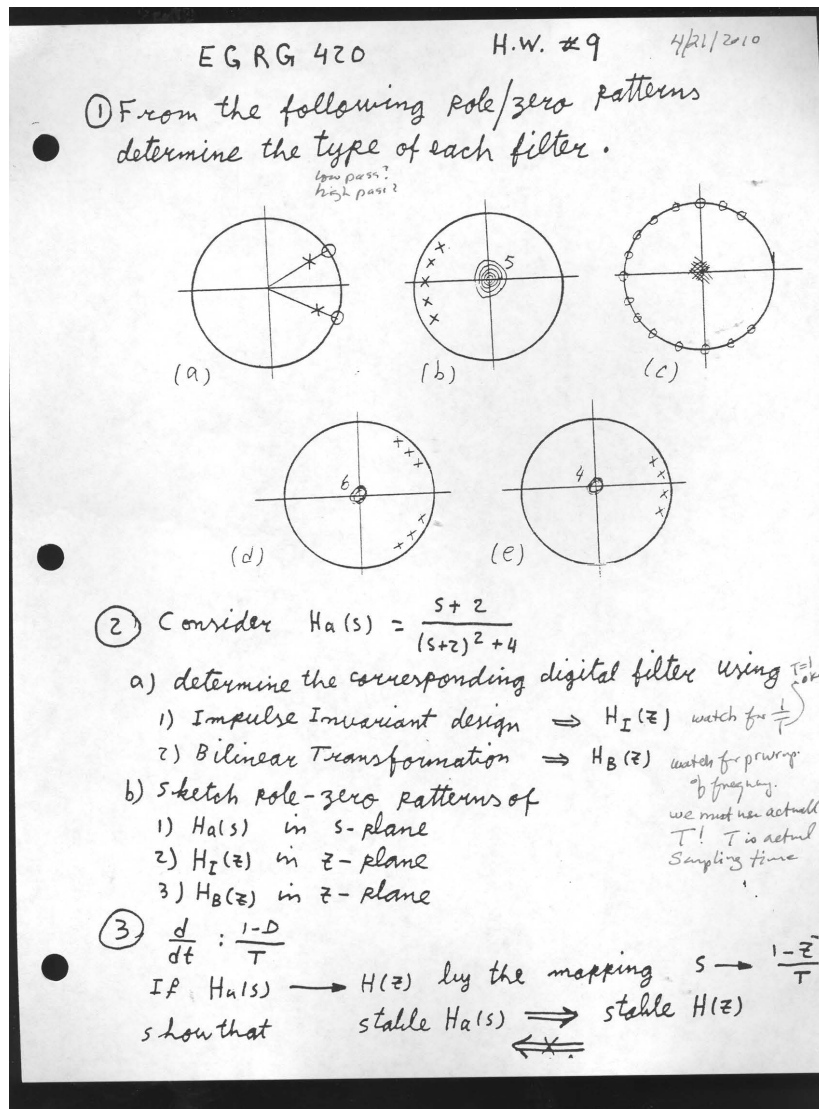 EGRG 420 H.W. #9 4/21/2010
① From the following pole/zero patterns
determine the type of each filter.
low pass?
high pass?
5
(a) (b) (c)
6 4
(d) (e)
② Consider Ha(s) = (s+2)/((s+2)² + 4)
a) determine the corresponding digital filter using T=1
1) Impulse Invariant design ⇒ H_I(z) watch for 1/T
2) Bilinear Transformation ⇒ H_B(z) watch for
of
b) sketch pole-zero patterns of
we must use
1) Ha(s) in s-plane
T! T is actual
2) H_I(z) in z-plane
Sampling time
3) H_B(z) in z-plane
③ d/dt : (1-D)/T
If Ha(s) → H(z) by the mapping s → (1-z⁻)/T
show that stable Ha(s) ⇒ stable H(z)